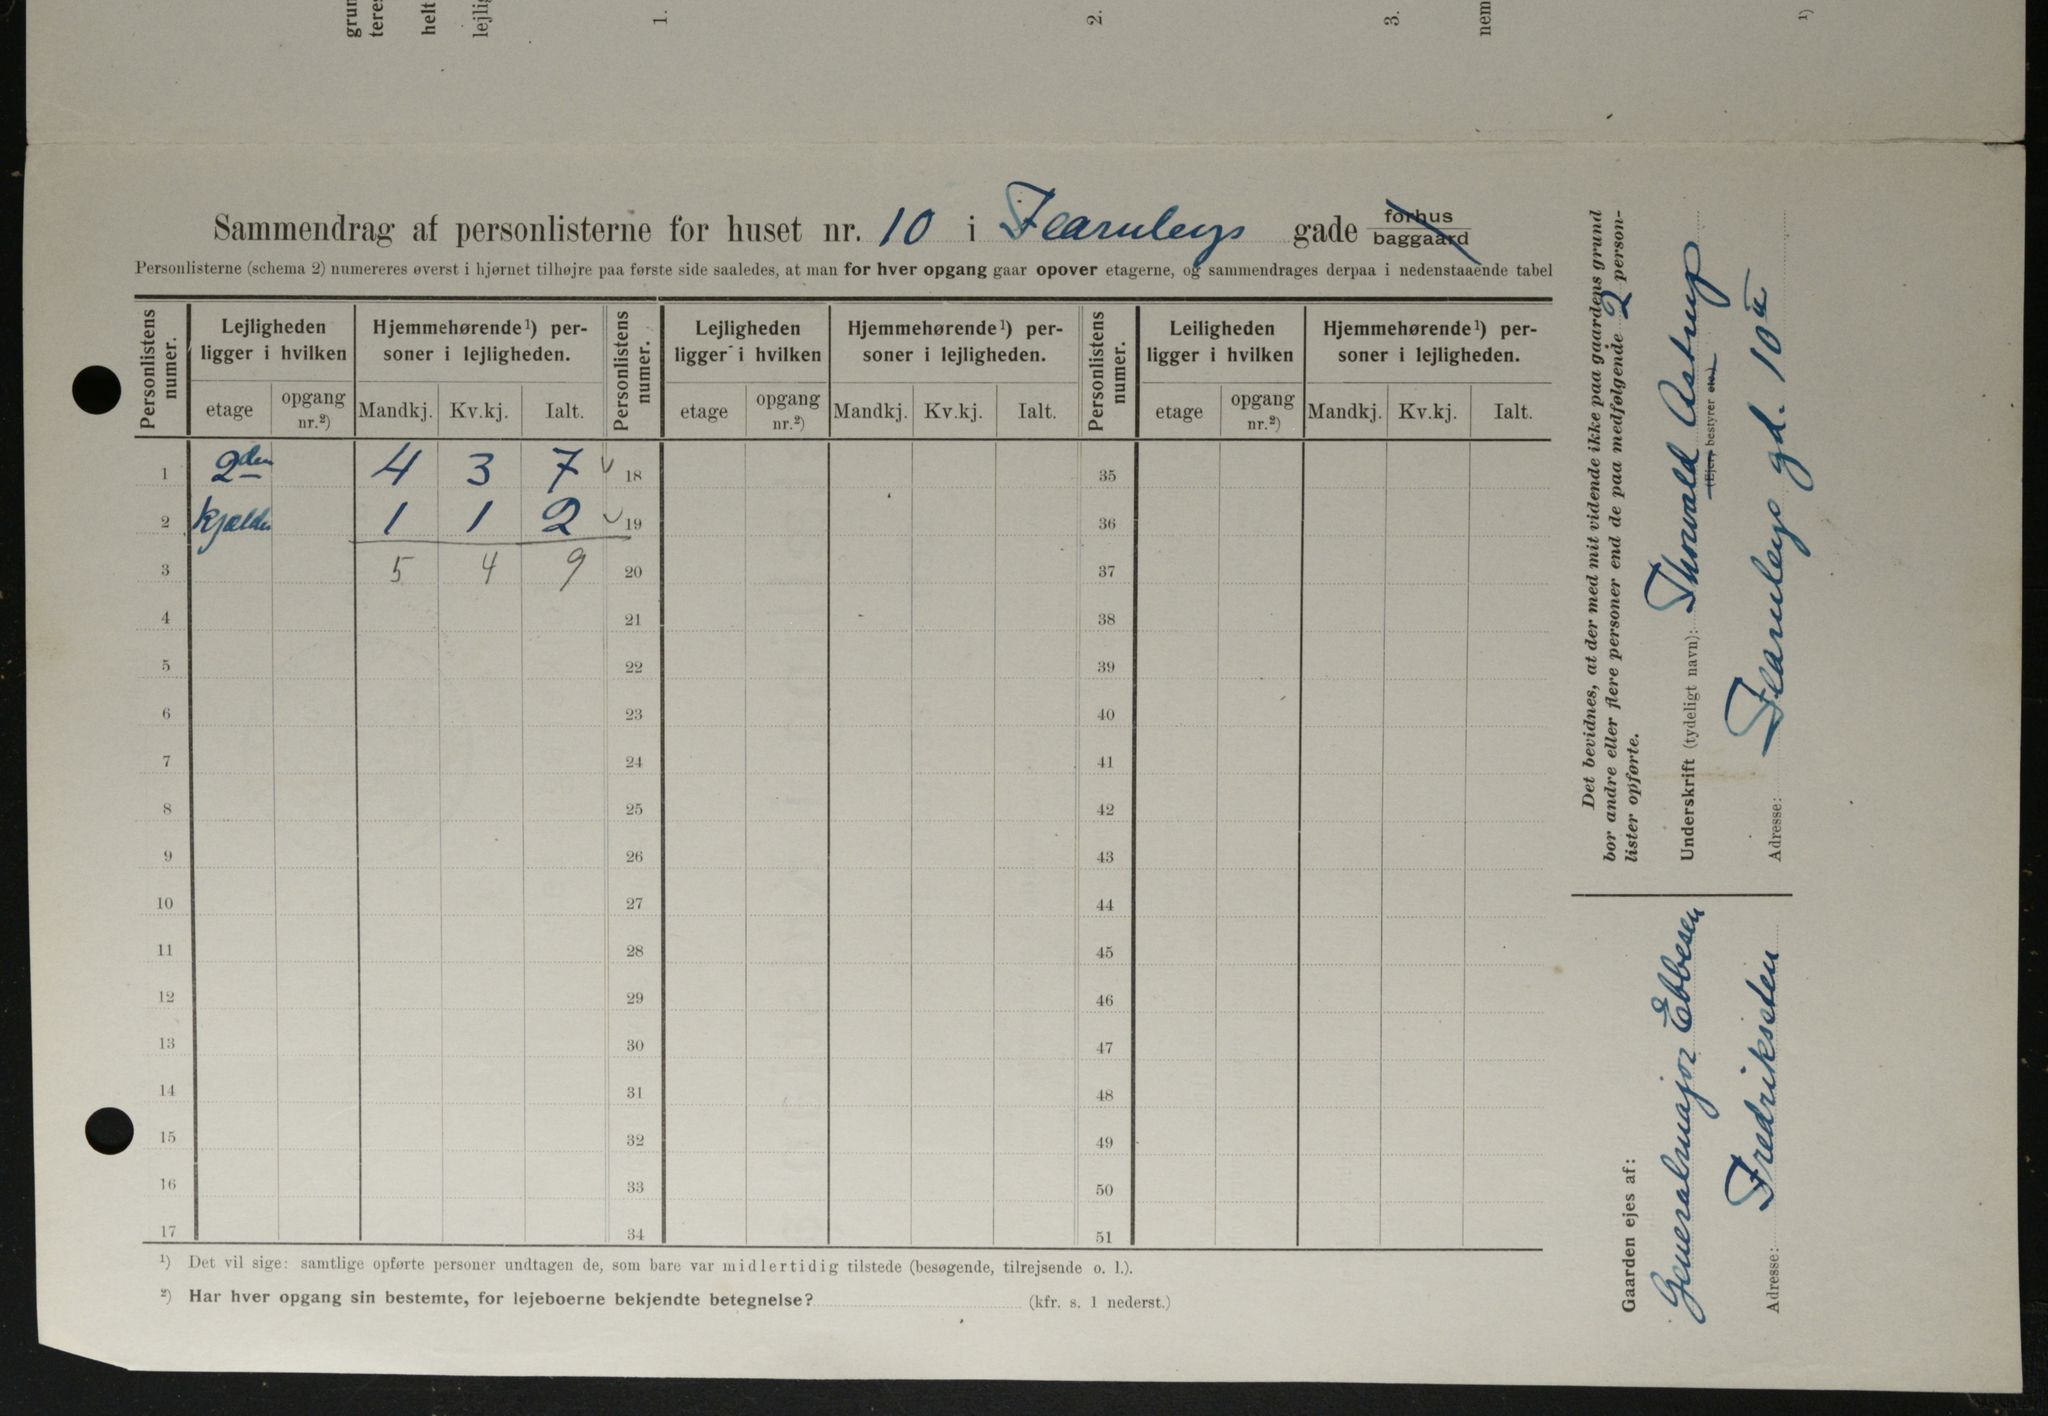 grun
teres
helt
lejlig
1.
2.
3.
nem
¹)
Sammendrag af personlisterne for huset nr. 10 i Fearnleys gade forhus
baggaard
Personlisterne (schema 2) numereres øverst i hjørnet tilhøjre paa første side saaledes, at man for hver opgang gaar opover etagerne, og sammendrages derpaa i nedenstaaende tabel
Personlistens numer. Lejligheden ligger i hvilken Hjemmehørende¹) personer i lejligheden. Personlistens numer. Lejligheden ligger i hvilken Hjemmehørende¹) personer i lejligheden. Personlistens numer. Leiligheden ligger i hvilken Hjemmehørende¹) personer i lejligheden.
etage opgang nr.²) Mandkj. Kv.kj. Ialt. etage opgang nr.²) Mandkj. Kv.kj. Ialt. etage opgang nr.²) Mandkj. Kv.kj. Ialt.
1 2den 4 3 7 18 35
2 kjælder 1 1 2 19 36
3 5 4 9 20 37
4 21 38
5 22 39
6 23 40
7 24 41
8 25 42
9 26 43
10 27 44
11 28 45
12 29 46
13 30 47
14 31 48
15 32 49
16 33 50
17 34 51
¹) Det vil sige: samtlige opførte personer undtagen de, som bare var midlertidig tilstede (besøgende, tilrejsende o. l.).
²) Har hver opgang sin bestemte, for lejeboerne bekjendte betegnelse? (kfr. s. 1 nederst.)
Det bevidnes, at der med mit vidende ikke paa gaardens grund
bor andre eller flere personer end de paa medfølgende 2 person-
lister opførte.
Underskrift (tydeligt navn): Thorvald Astrup
(Ejer, bestyrer etc.)
Adresse: Fearnleys gd. 10 II
Gaarden ejes af:
Generalmajor Ebbesen
Adresse: Fredriksten